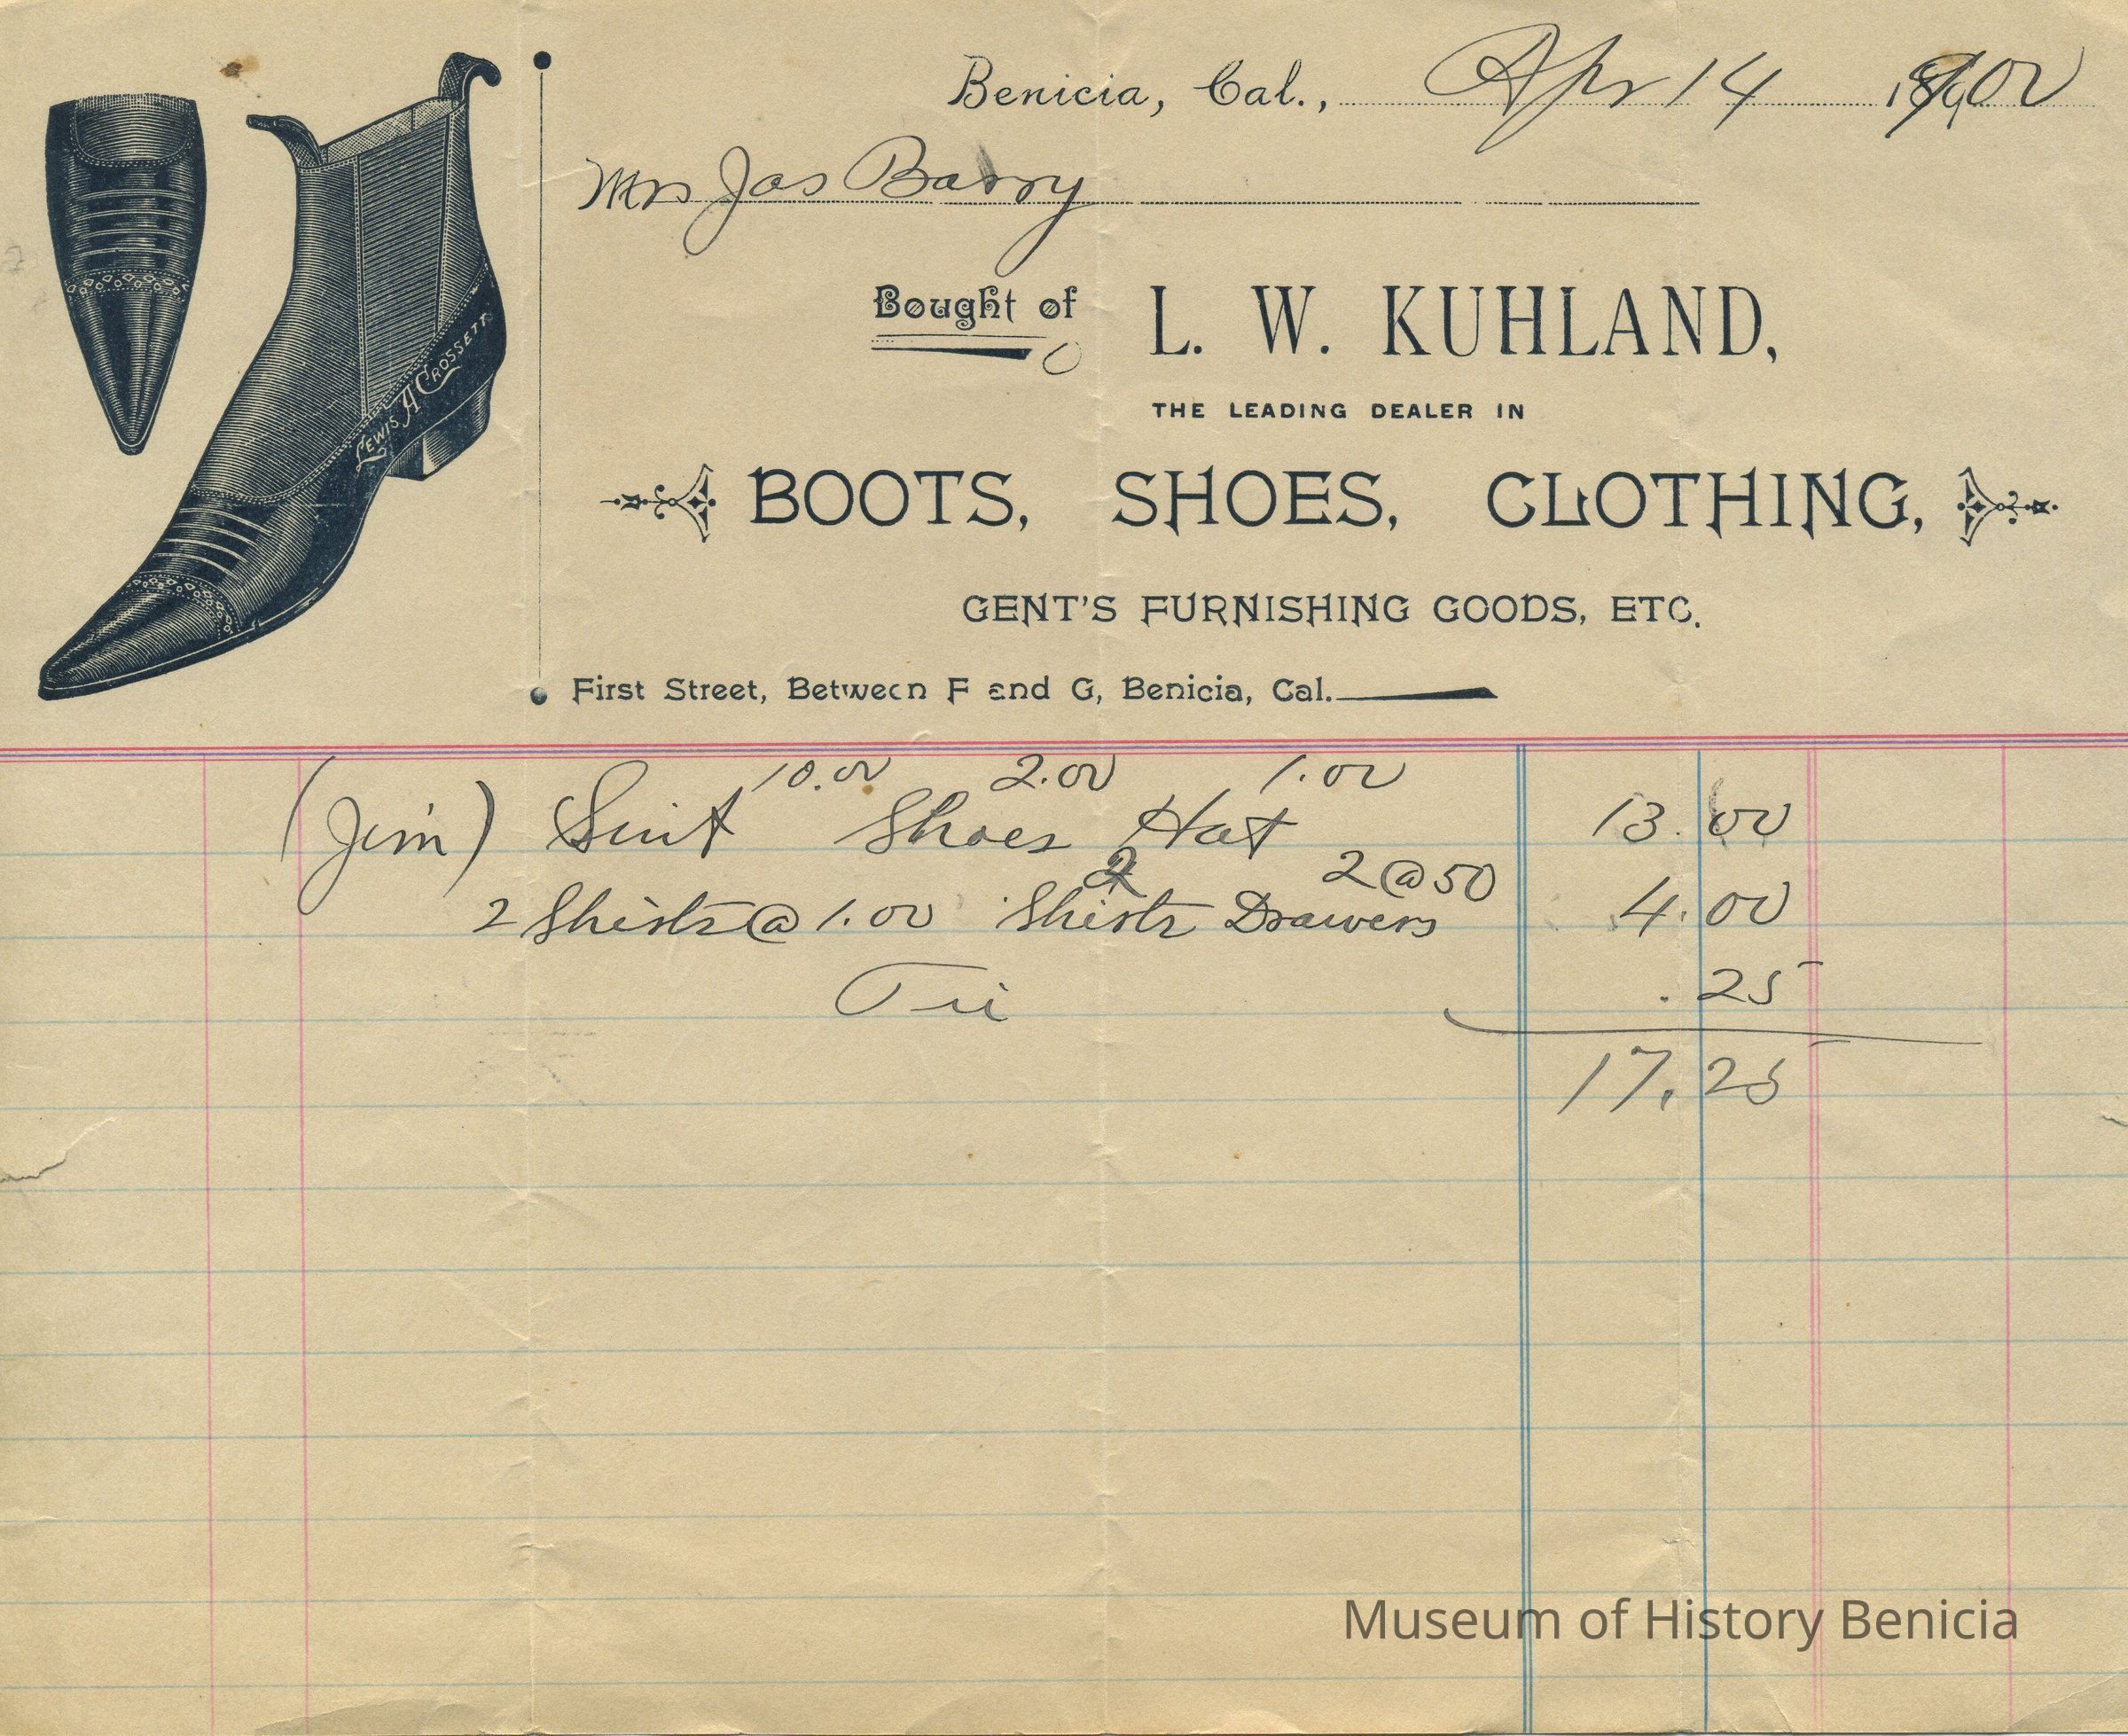 Benicia, Cal., Apr 14 1900
Mrs Jas Barry
Bought of L. W. KUHLAND,
THE LEADING DEALER IN
BOOTS, SHOES, CLOTHING,
GENT'S FURNISHING GOODS, ETC.
First Street, Between F and G, Benicia, Cal.
LEWIS A CROSSETT
10.00 2.00 1.00
(Jim) Suit Shoes Hat 13.00
2 2@50
2 Shirts @ 1.00 Shirts Drawers 4.00
Tie .25
17.25
Museum of History Benicia